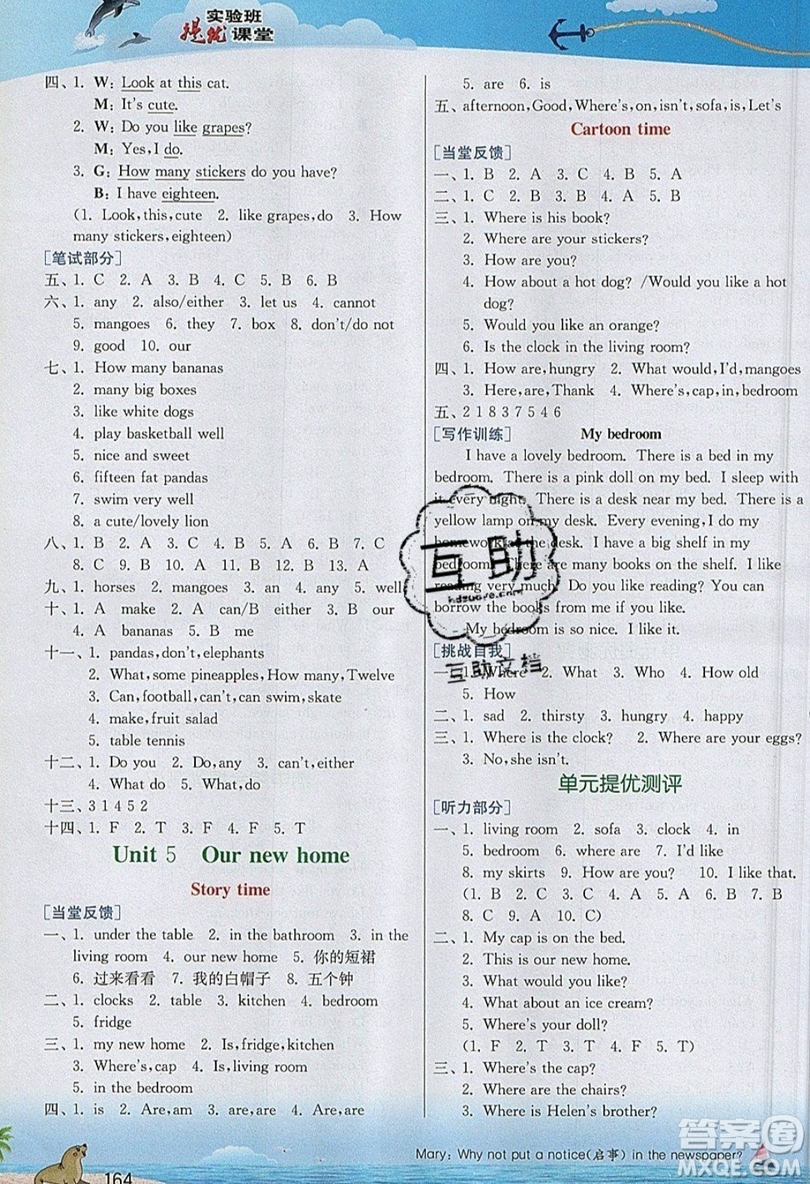 实验班
提优课堂
四、1. W: Look at this cat.
M: It's cute.
2. W: Do you like grapes?
M: Yes, I do.
3. G: How many stickers do you have?
B: I have eighteen.
(1. Look, this, cute 2. like grapes, do 3. How
many stickers, eighteen)
[笔试部分]
五、1. C 2. A 3. B 4. C 5. B 6. B
六、1. any 2. also/either 3. let us 4. cannot
5. mangoes 6. they 7. box 8. don't/do not
9. good 10. our
七、1. How many bananas
2. many big boxes
3. like white dogs
4. play basketball well
5. nice and sweet
6. fifteen fat pandas
7. swim very well
8. a cute/lovely lion
八、1. B 2. A 3. B 4. A 5. B 6. B 7. C
8. C 9. B 10. A 11. B 12. B 13. A
九、1. horses 2. mangoes 3. an 4. can 5. well
十、1. A make 2. A can/B either 3. B our
4. A bananas 5. B me
十一、1. pandas, don't, elephants
2. What, some pineapples, How many, Twelve
3. Can, football, can't, can swim, skate
4. make, fruit salad
5. table tennis
十二、1. Do you 2. Do, any 3. can't, either
4. What do 5. What do
十三、3 1 4 5 2
十四、1. F 2. T 3. F 4. F 5. T
Unit 5 Our new home
Story time
[当堂反馈]
一、1. under the table 2. in the bathroom 3. in the
living room 4. our new home 5. 你的短裙
6. 过来看看 7. 我的白帽子 8. 五个钟
二、1. clocks 2. table 3. kitchen 4. bedroom
5. fridge
三、1. my new home 2. Is, fridge, kitchen
3. Where's, cap 4. Is, living room
5. in the bedroom
四、1. is 2. Are, am 3. Are, are 4. Are, are
164
5. are 6. is
五、afternoon, Good, Where's, on, isn't, sofa, is, Let's
Cartoon time
[当堂反馈]
一、1. B 2. A 3. C 4. B 5. A
二、1. C 2. B 3. B 4. A 5. B
三、1. Where is his book?
2. Where are your stickers?
3. How are you?
4. How about a hot dog? /Would you like a hot
dog?
5. Would you like an orange?
6. Is the clock in the living room?
四、1. How are, hungry 2. What would, I'd, mangoes
3. Here, are, Thank 4. Where's, cap, in, bedroom
五、2 1 8 3 7 5 4 6
[写作训练] My bedroom
I have a lovely bedroom. There is a bed in my
bedroom. There is a pink doll on my bed. I sleep with
it every night. There is a desk near my bed. There is a
yellow lamp on my desk. Every evening, I do my
homework at the desk. I have a big shelf in my
bedroom. There are many books on the shelf. I like
reading very much. Do you like reading? You can
borrow the books from me if you like.
My bedroom is so nice. I like it.
[挑战自我]
一、1. Where 2. What 3. Who 4. How old
5. How
二、1. sad 2. thirsty 3. hungry 4. happy
三、1. Where is the clock? 2. Where are your eggs?
3. No, she isn't.
单元提优测评
[听力部分]
一、1. living room 2. sofa 3. clock 4. in
5. bedroom 6. where are 7. I'd like
8. my skirts 9. How are you? 10. I like that.
(1. B 2. A 3. B 4. A 5. B 6. B 7. B
8. C 9. B 10. C)
二、1. My cap is on the bed.
2. This is our new home.
3. What would you like?
4. What about an ice cream?
5. Where's your doll?
(1. F 2. T 3. T 4. F 5. T)
三、1. Where's the cap?
2. Where are the chairs?
3. Where is Helen's brother?
Mary: Why not put a notice(启事) in the newspaper?
互助
hdzuoye.com
互助文档
答案圈
MXQE.COM